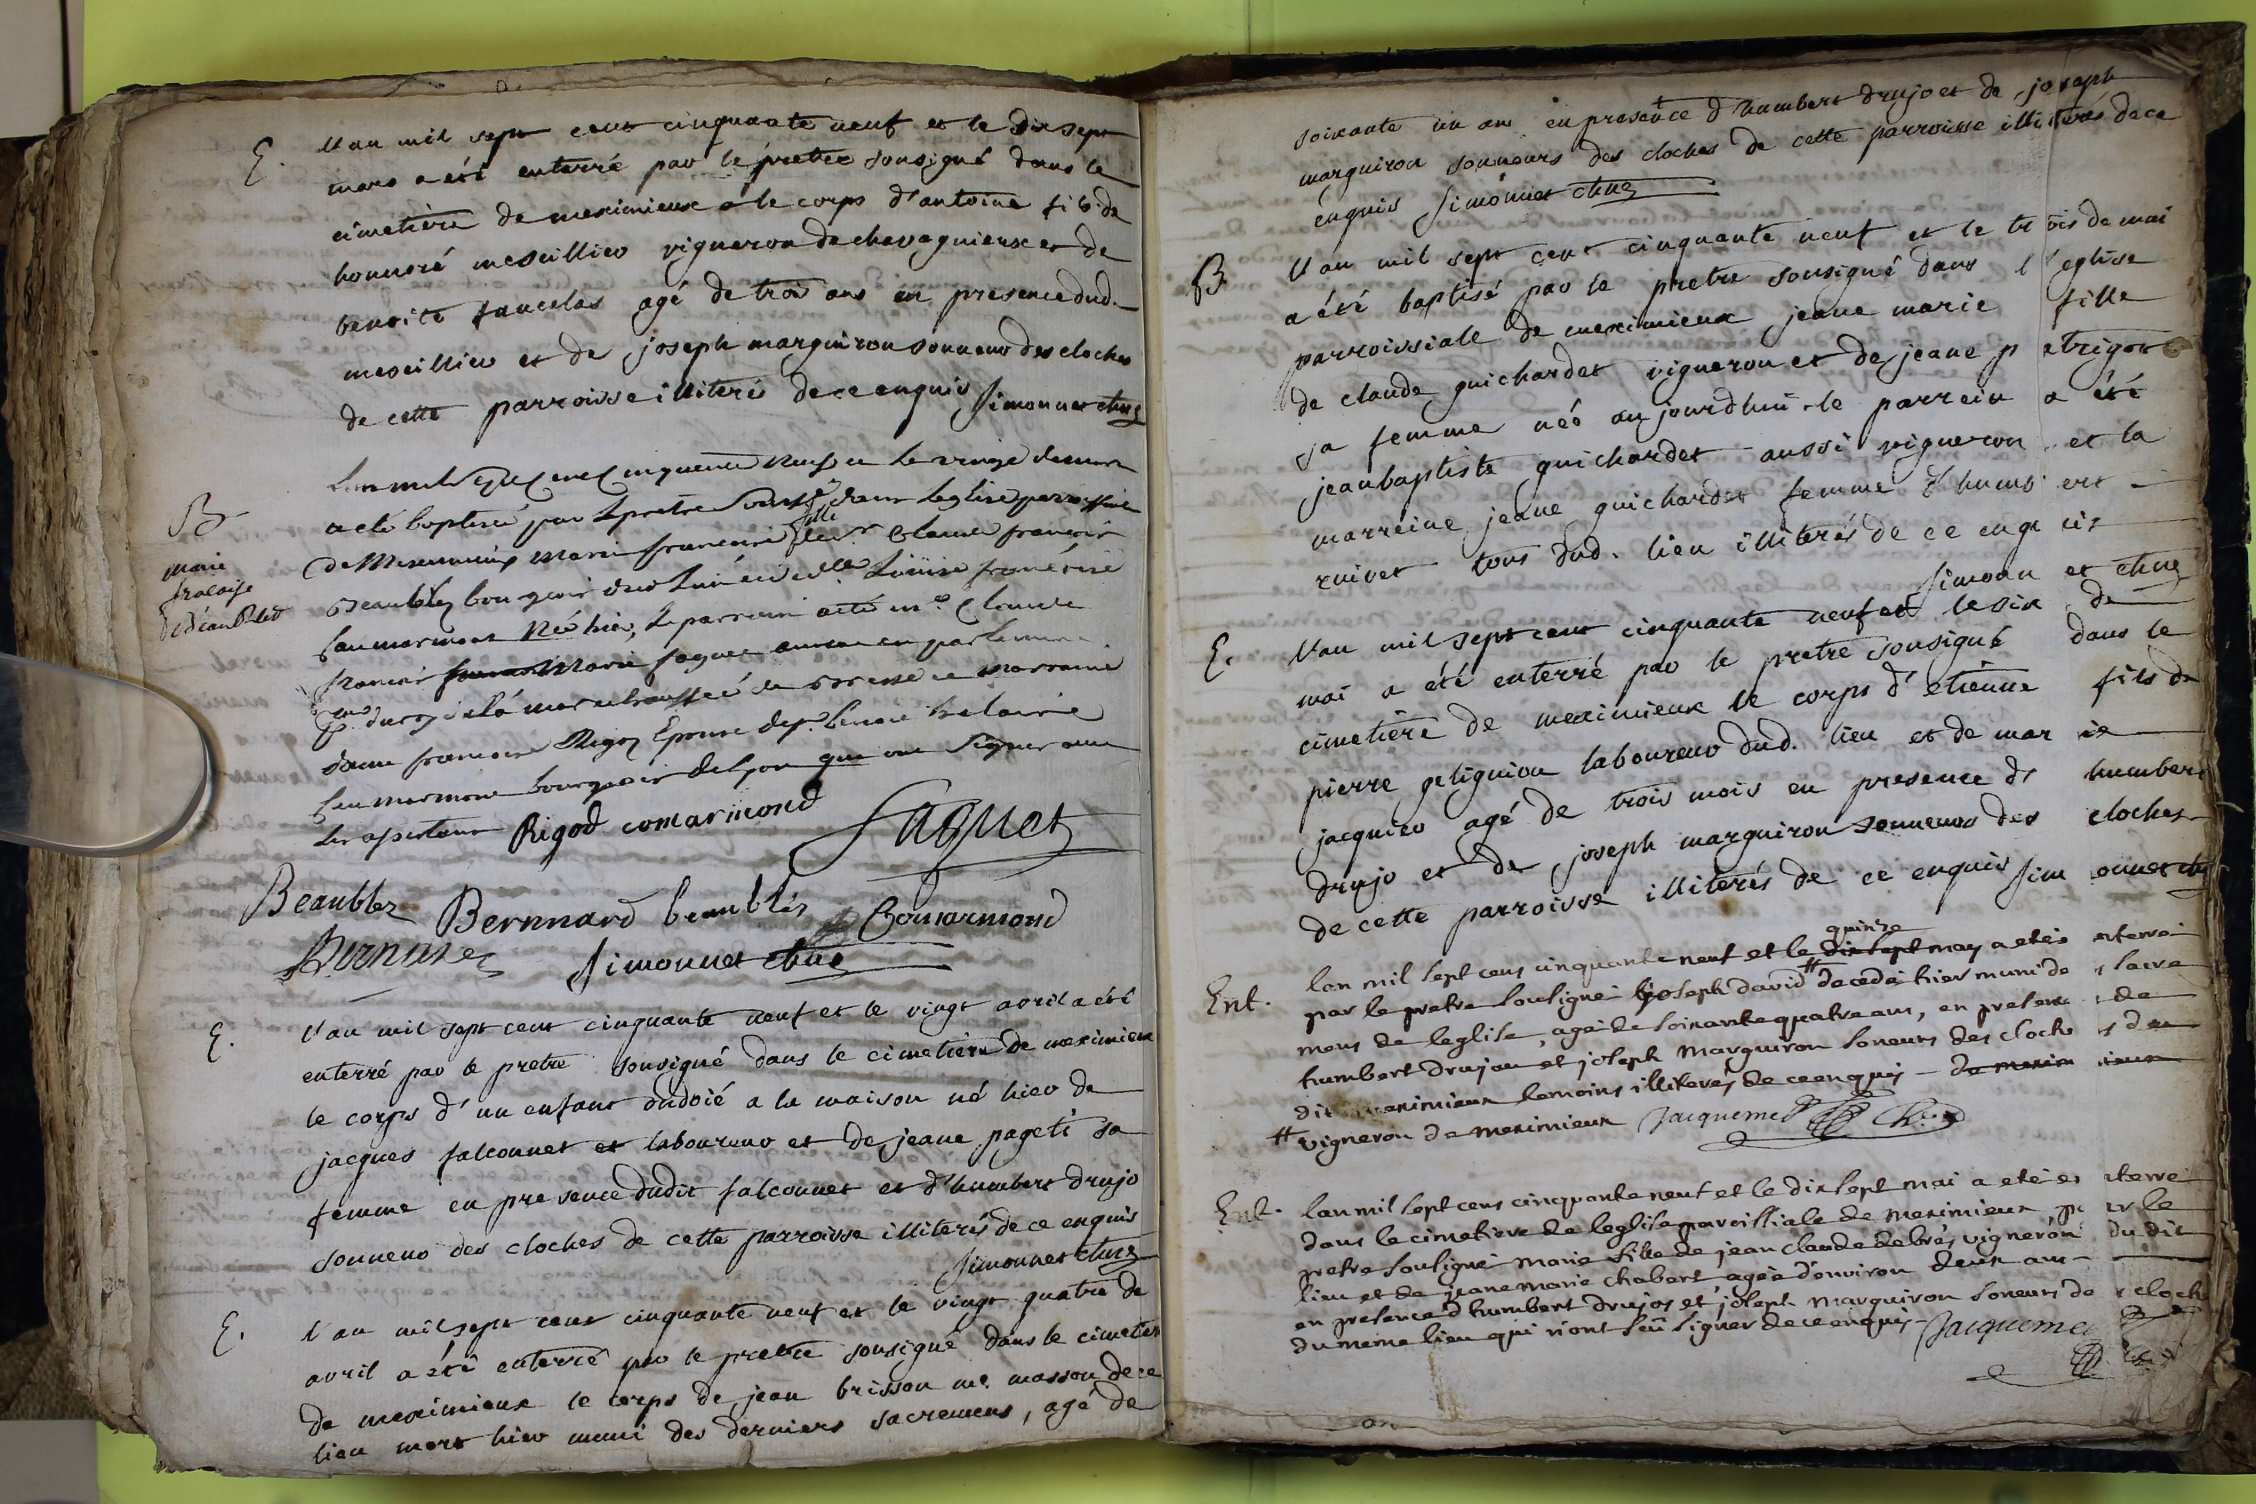 E. l'an mil sept cent cinquante neuf et le dix sept
mars a été enterré par le pretre sousigné dans le
cimetière de meximieux le corps d'antoine fils de
honnoré meseillieu vigneron de chavagnieux et de
benoite agé de trois ans en presence dud.
meseillieu et de joseph marguiron sonneur des cloches
de cette parroisse illiteré de ce enquis Simonnet
B L'an mil sept cent cinquante neuf et le vingt de mars
marie
francoise
de beaublez
a eté baptisée par le pretre sousigné dans l'eglise parroissiale
fille
de Meximieux Marie francoise de sr Claude francois
Beaublez bourgeois et de dlle Louise
Comarmond Née hier, Le parrain a eté me Claude
francois Marie faquet avocat en parlement
du roy a la marechaussée de Bresse et marraine
dame francoise Rigod Epouse de sr benoit
Comarmond bourgeois de Lyon qui ont signé avec
Rigod comarmond faquet
Beaublez Bernnard beaublés Comarmond
Simonnet
E. l'an mil sept cent cinquante neuf et le vingt avril a été
enterré par le pretre sousigné dans le cimetière de meximieux
le corps d'un enfant ondoié a la maison né hier de
jacques falconnet et laboureur et de jeane pageti sa
femme en presence dudit falconnet et d'humbert drujo
sonneur des cloches de cette parroisse illiterés de ce enquis
Simonnet
E. l'an mil sept cent cinquante neuf et le vingt quatre de
avril a été enterré par le pretre sousigné dans le cimetiere
de meximieux le corps de jean brisson me masson de ce
lieu mort hier muni des derniers sacremens, agé de
soixante un ans en presence d'humbert drujo et de joseph
marguiron sonneurs des cloches de cette parroisse illiterés de ce
enquis Simonnet
B l'an mil sept cent cinquante neuf et le trois de mai
a été baptisé par le pretre sousigné dans l'eglise
parroissiale de meximieux jeane marie fille
de claude guichardet vigneron et de jeane petrigot
sa femme née aujourdhui le parrein a été
jean baptiste guichardet aussi vigneron et la
marreine jeane guichardet femme d'humbert
ruivet tous dud. lieu illiterés de ce enquis
Simonnet
E. l'an mil sept cent cinquante neuf et le six de
mai a été enterré par le pretre sousigné dans le
cimetière de meximieux le corps d'etienne fils de
pierre geliguiou laboureur dud. lieu et de marie
jacquier agé de trois mois en presence d' humbert
drujo et de joseph marguiron sonneurs des cloches
de cette parroisse illiterés de ce enquis Simonnet
quinze
Ent. lan mil sept cens cinquante neuf et le dix sept may a eté enterré
par le pretre sousigné joseph david # decedé hier muni des sacre
mens de leglise, agé de soixante quatre ans, en presence de
humbert drujon et joseph Marguiron soneurs des cloches du
dit meximieux temoins illiterés de ce enquis de meximieux
# vigneron de meximieux Jacquemet
Ent. lan mil sept cens cinquante neuf et le dix sept mai a eté enterré
dans le cimetiere de leglise paroissiale de meximieux par le
pretre sousigné marie fille de jean claude debrés vigneron du dit
lieu et de jeane marie chabert agée d'environ deux ans
en presence d'humbert drujos et joseph Marguiron soneurs de cloche
du meme lieu qui n'ont sçu signer de ce enquis Jacquemet